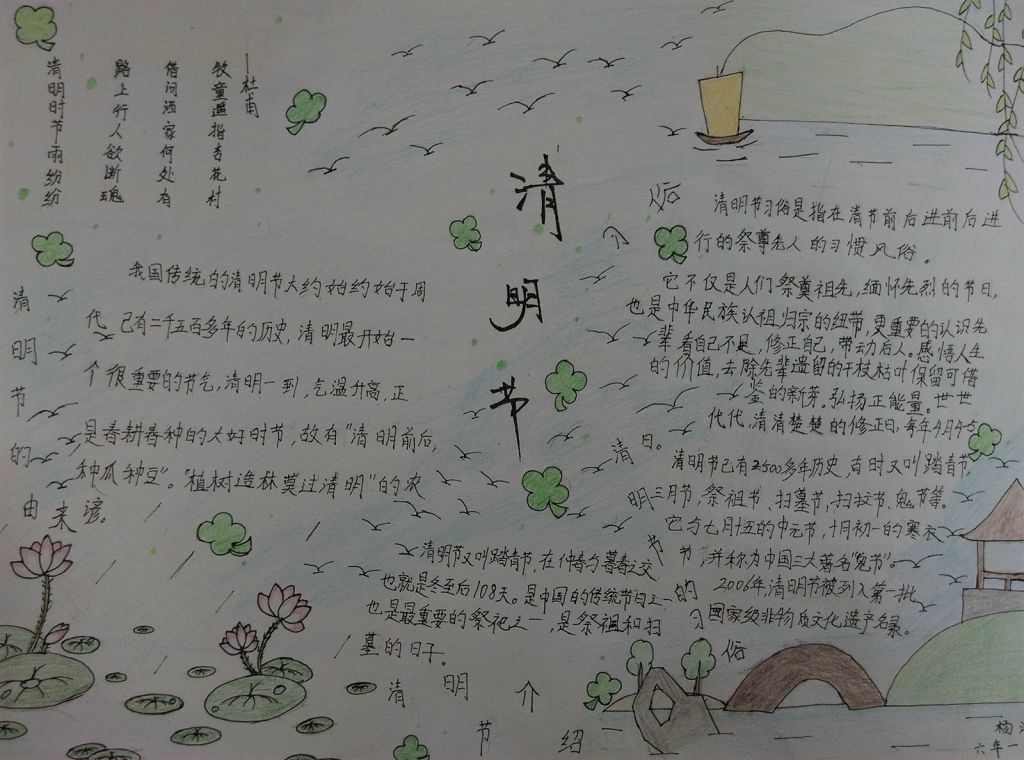 清明时节雨纷纷
路上行人欲断魂
借问酒家何处有
牧童遥指杏花村
—杜甫
清明节
清明节的由来
我国传统的清明节大约始约始于周
代，已有二千五百多年的历史，清明最开始一
个很重要的节气，清明一到，气温升高，正
是春耕春种的大好时节，故有“清明前后，
种瓜种豆”。“植树造林莫过清明”的农
谚。
清明节又叫踏青节，在仲春与暮春之交
也就是冬至后108天。是中国的传统节日之一
也是最重要的祭祀之一，是祭祖和扫
墓的日子。
清明节介绍
清明节习俗是指在清节前后进前后进
行的祭尊先人的习惯风俗。
它不仅是人们祭奠祖先，缅怀先烈的节日，
也是中华民族认祖归宗的纽带，更重要的认识先
辈看自己不足，修正自己，带动后人。感悟人生
的价值，去除先辈遗留的干枝枯叶保留可借
鉴的新芽。弘扬正能量。世世
代代，清清楚楚的修正日，每年4月4-5
日。
清明节已有2500多年历史，古时又叫踏青节，
三月节，祭祖节、扫墓节，扫坟节、鬼节等。
它与七月十五的中元节，十月初一的寒衣
节，并称为中国三大著名“鬼节”。
2006年，清明节被列入第一批
国家级非物质文化遗产名录。
清明节的习俗
杨
六年一